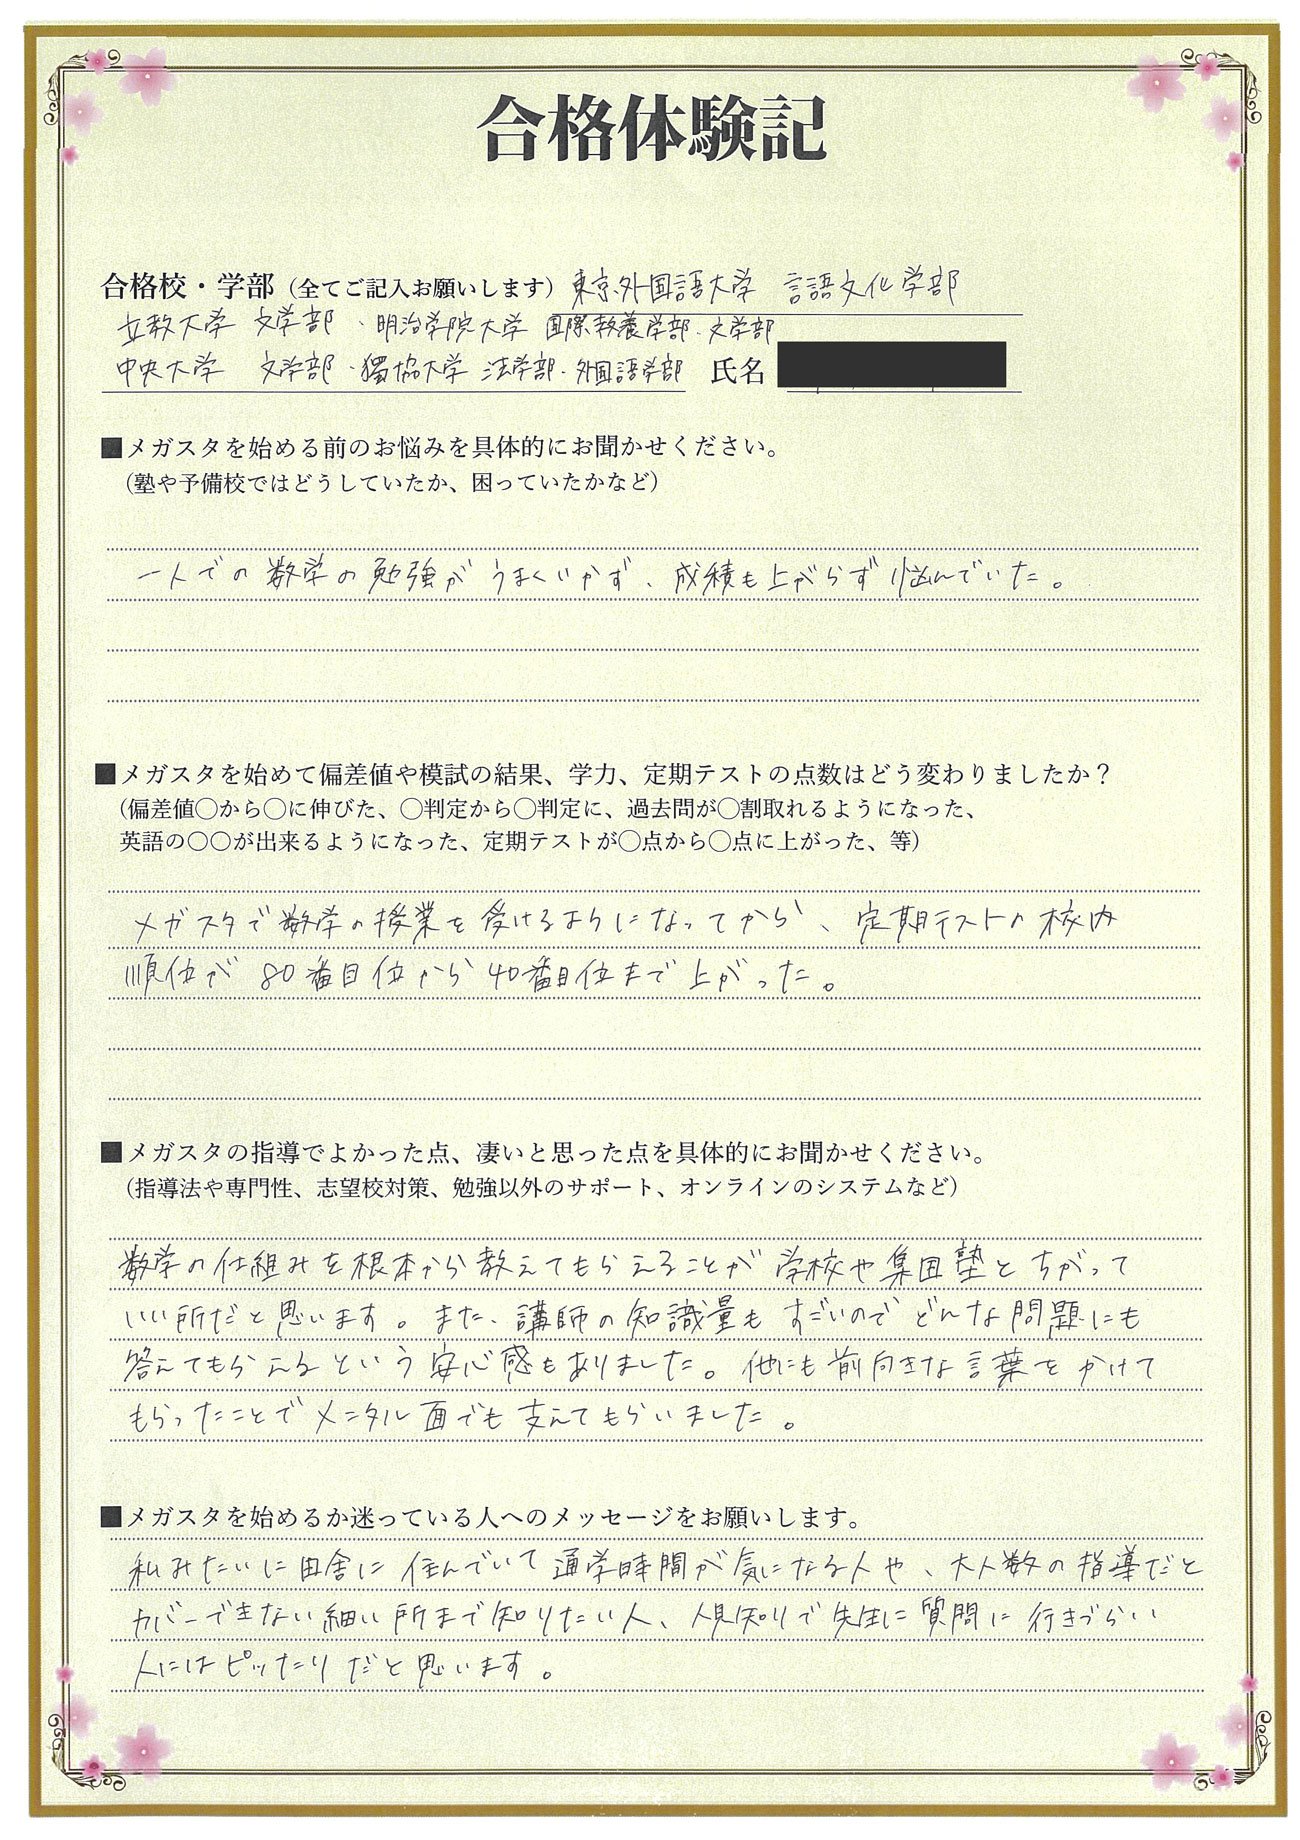 合格体験記
合格校・学部（全てご記入お願いします）東京外国語大学 言語文化学部
立教大学 文学部・明治学院大学 国際教養学部・文学部
中央大学 文学部・獨協大学 法学部・外国語学部 氏名
■メガスタを始める前のお悩みを具体的にお聞かせください。
（塾や予備校ではどうしていたか、困っていたかなど）
一人での数学の勉強がうまくいかず、成積も上がらず悩んでいた。
■メガスタを始めて偏差値や模試の結果、学力、定期テストの点数はどう変わりましたか？
（偏差値○から○に伸びた、○判定から○判定に、過去問が○割取れるようになった、
英語の○○が出来るようになった、定期テストが○点から○点に上がった、等）
メガスタで数学の授業を受けるようになってから、定期テストの校内
順位が80番目位から40番目位まで上がった。
■メガスタの指導でよかった点、凄いと思った点を具体的にお聞かせください。
（指導法や専門性、志望校対策、勉強以外のサポート、オンラインのシステムなど）
数学の仕組みを根本から教えてもらえることが学校や集団塾とちがって
いい所だと思います。また、講師の知識量もすごいのでどんな問題にも
答えてもらえるという安心感もありました。他にも前向きな言葉をかけて
もらったことでメンタル面でも支えてもらいました。
■メガスタを始めるか迷っている人へのメッセージをお願いします。
私みたいに田舎に住んでいて通学時間が気になる人や、大人数の指導だと
カバーできない細い所まで知りたい人、人見知りで先生に質問に行きづらい
人にはピッタリだと思います。